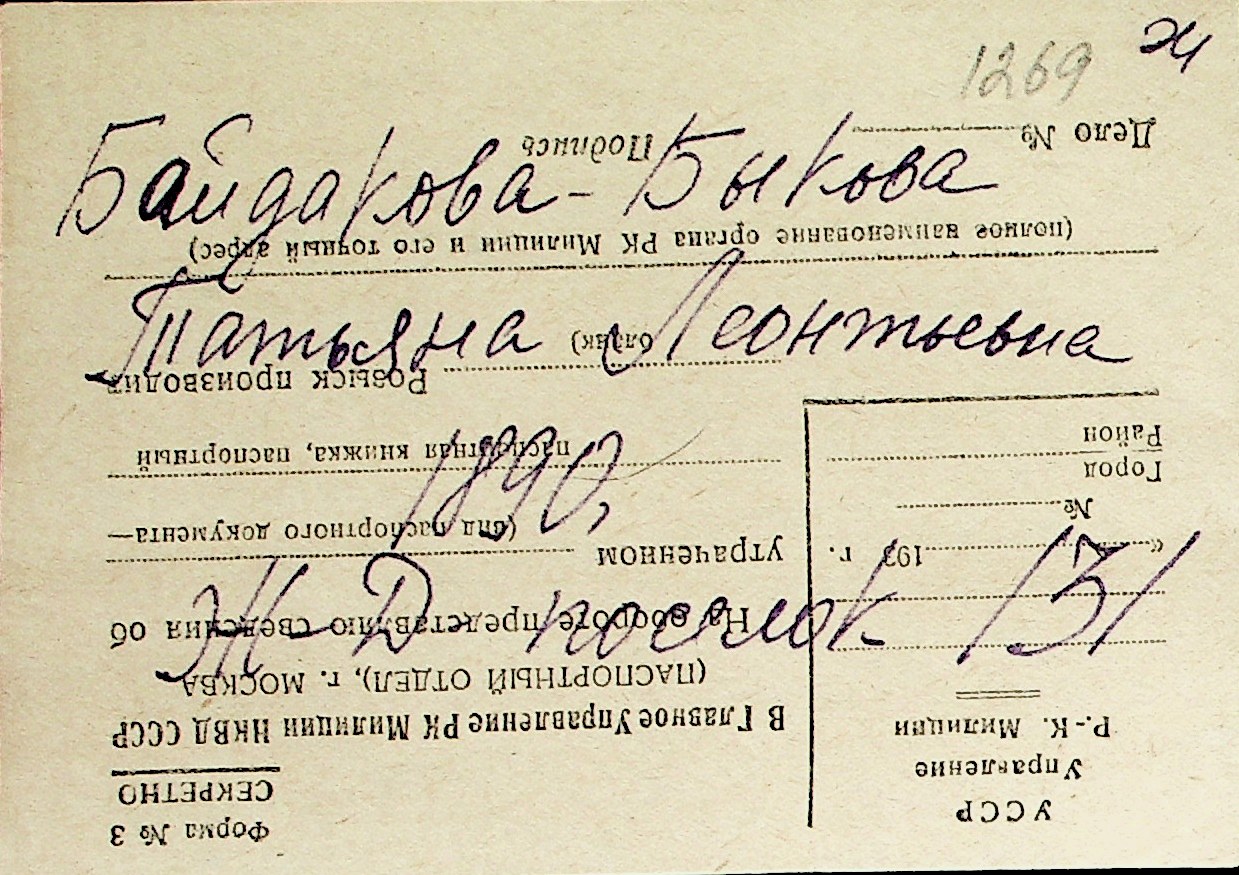 1269 Ж
Байдакова-Быкова
Татьяна Леонтьевна
1890,
Ж-Д поселок 131
Форма № 3
СЕКРЕТНО
УССР
Управление
Р.-К. Милиции
« 193 г.
№
Город
Район
В Главное Управление РК Милиции НКВД СССР
(ПАСПОРТНЫЙ ОТДЕЛ), г. МОСКВА
На обороте представляю сведения об
утраченном
(вид паспортного документа—
паспортная книжка, паспортный
бланк)
Розыск производит
(полное наименование органа РК Милиции и его точный адрес)
Дело № Подпись